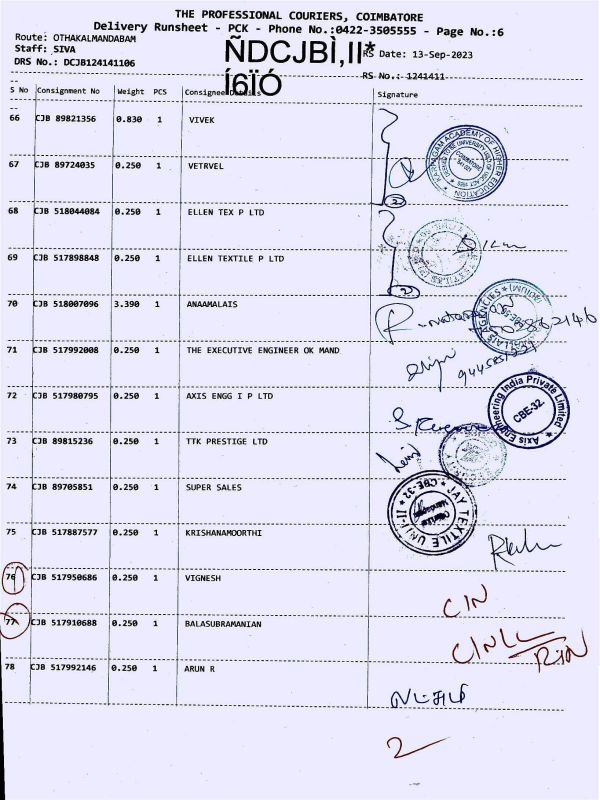 THE PROFESSIONAL COURIERS, COIMBATORE
Delivery Runsheet - PCK - Phone No.:0422-3505555 - Page No.:6
Route: OTHAKALMANDABAM
Staff: SIVA ÑDCJBÌ,II* RS Date: 13-Sep-2023
DRS No.: DCJB124141106 Í6ÏÓ RS No.: 1241411
S No Consignment No Weight PCS Consignee Details Signature
66 CJB 89821356 0.830 1 VIVEK
KARPAGAM ACADEMY OF HIGHER EDUCATION
67 CJB 89724035 0.250 1 VETRVEL
2
68 CJB 518044084 0.250 1 ELLEN TEX P LTD
69 CJB 517898848 0.250 1 ELLEN TEXTILE P LTD
2
70 CJB 518007096 3.390 1 ANAAMALAIS
AGENCIES
71 CJB 517992008 0.250 1 THE EXECUTIVE ENGINEER OK MAND
72 CJB 517980795 0.250 1 AXIS ENGG I P LTD
Axis Engineering India Private Limited
CBE-32
73 CJB 89815236 0.250 1 TTK PRESTIGE LTD
74 CJB 89705851 0.250 1 SUPER SALES
JAY TEXTILE UNIT-II CBE-32
75 CJB 517887577 0.250 1 KRISHANAMOORTHI
76 CJB 517950686 0.250 1 VIGNESH
CIN
77 CJB 517910688 0.250 1 BALASUBRAMANIAN
78 CJB 517992146 0.250 1 ARUN R
2